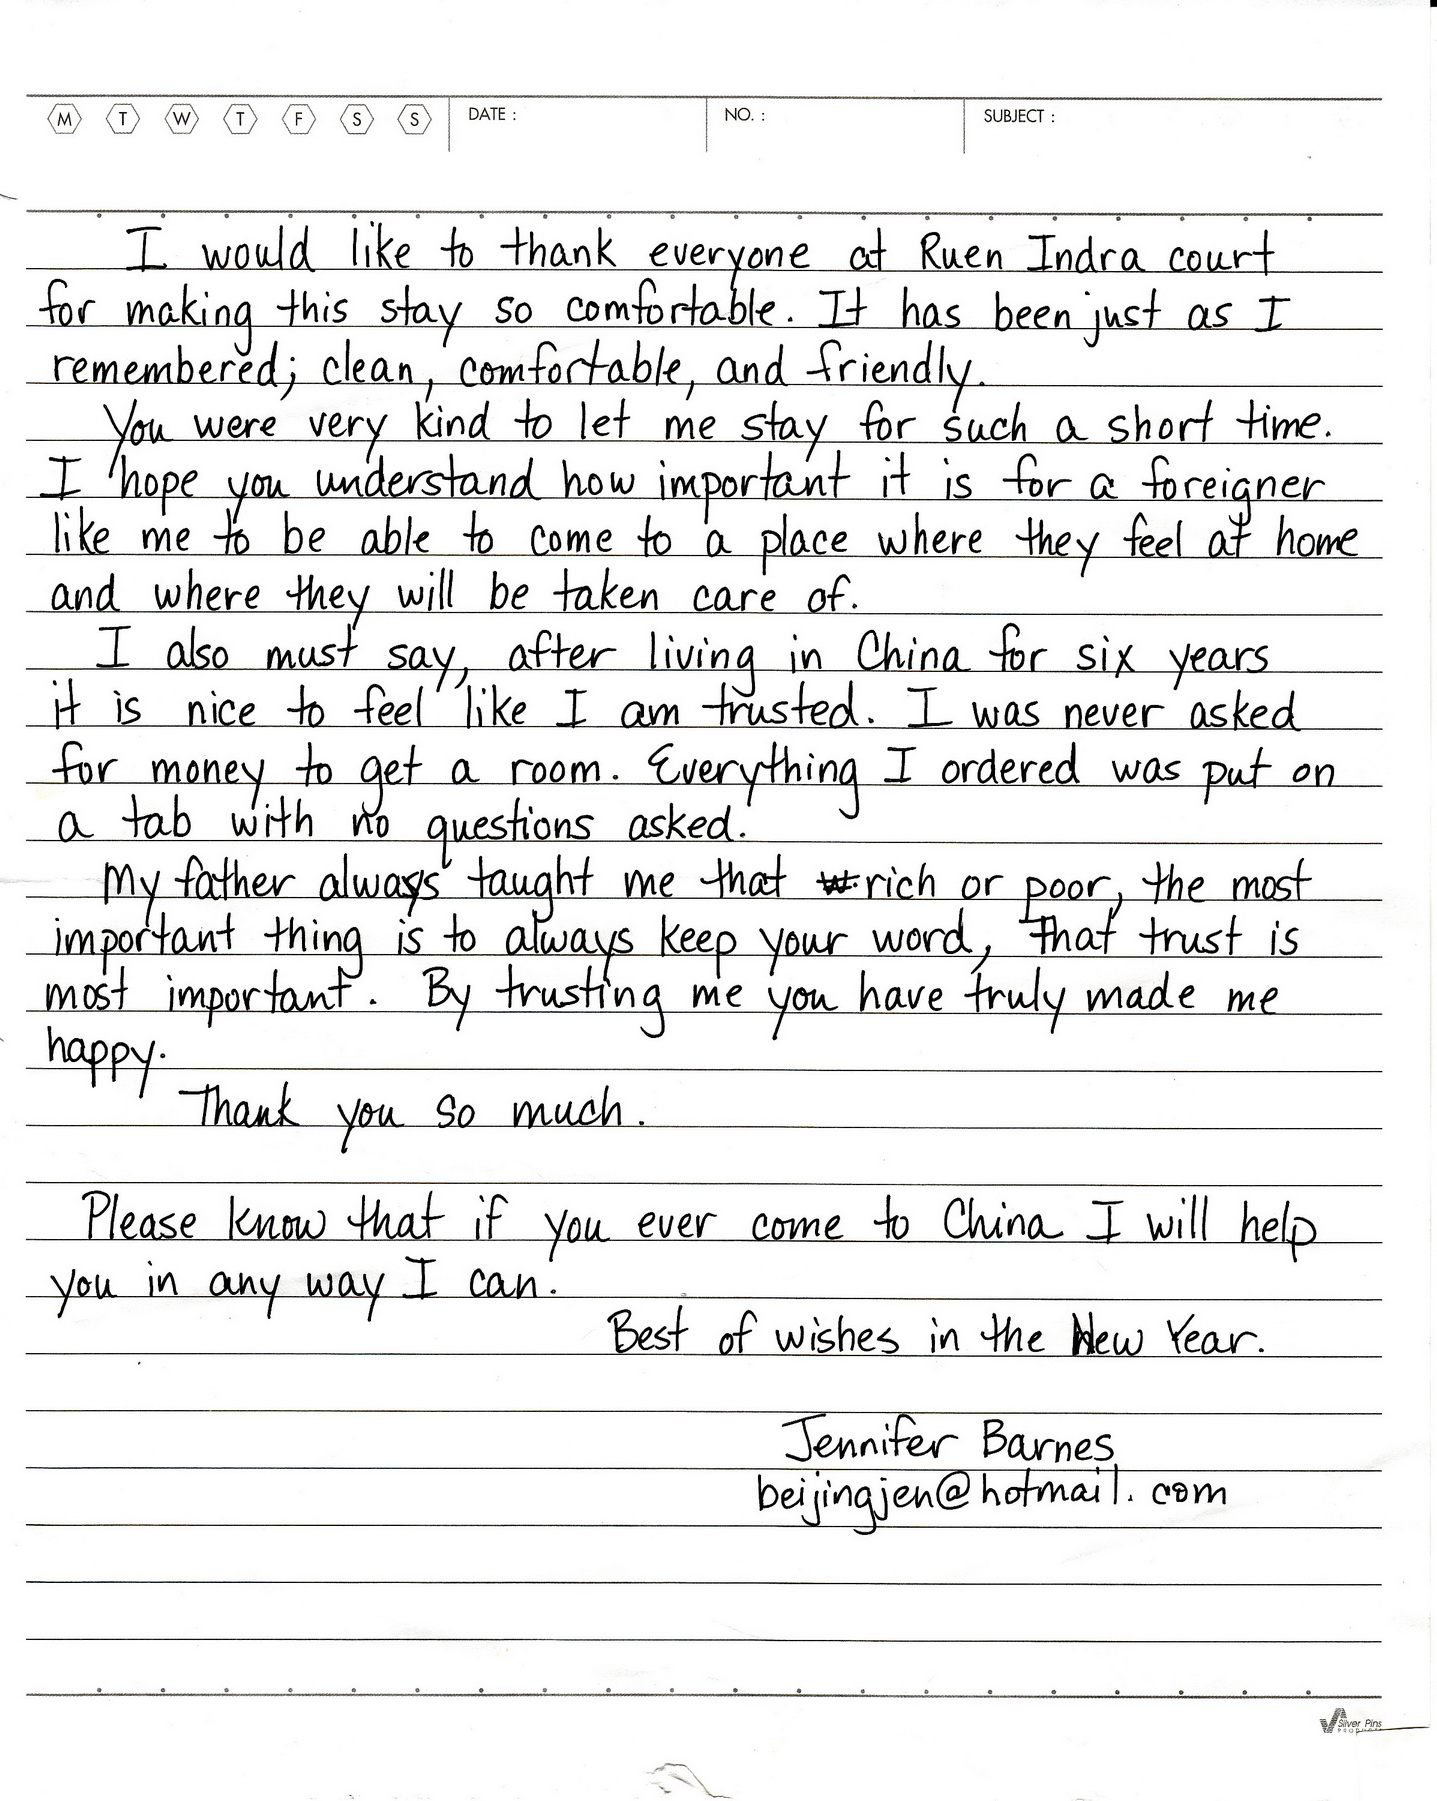 M T W T F S S DATE : NO. : SUBJECT :
I would like to thank everyone at Ruen Indra court
for making this stay so comfortable. It has been just as I
remembered; clean, comfortable, and friendly.
You were very kind to let me stay for such a short time.
I hope you understand how important it is for a foreigner
like me to be able to come to a place where they feel at home
and where they will be taken care of.
I also must say, after living in China for six years
it is nice to feel like I am trusted. I was never asked
for money to get a room. Everything I ordered was put on
a tab with no questions asked.
My father always taught me that rich or poor, the most
important thing is to always keep your word, that trust is
most important. By trusting me you have truly made me
happy.
Thank you so much.
Please know that if you ever come to China I will help
you in any way I can.
Best of wishes in the New Year.
Jennifer Barnes
beijingjen@hotmail.com
Silver Pins
PRODUCTS